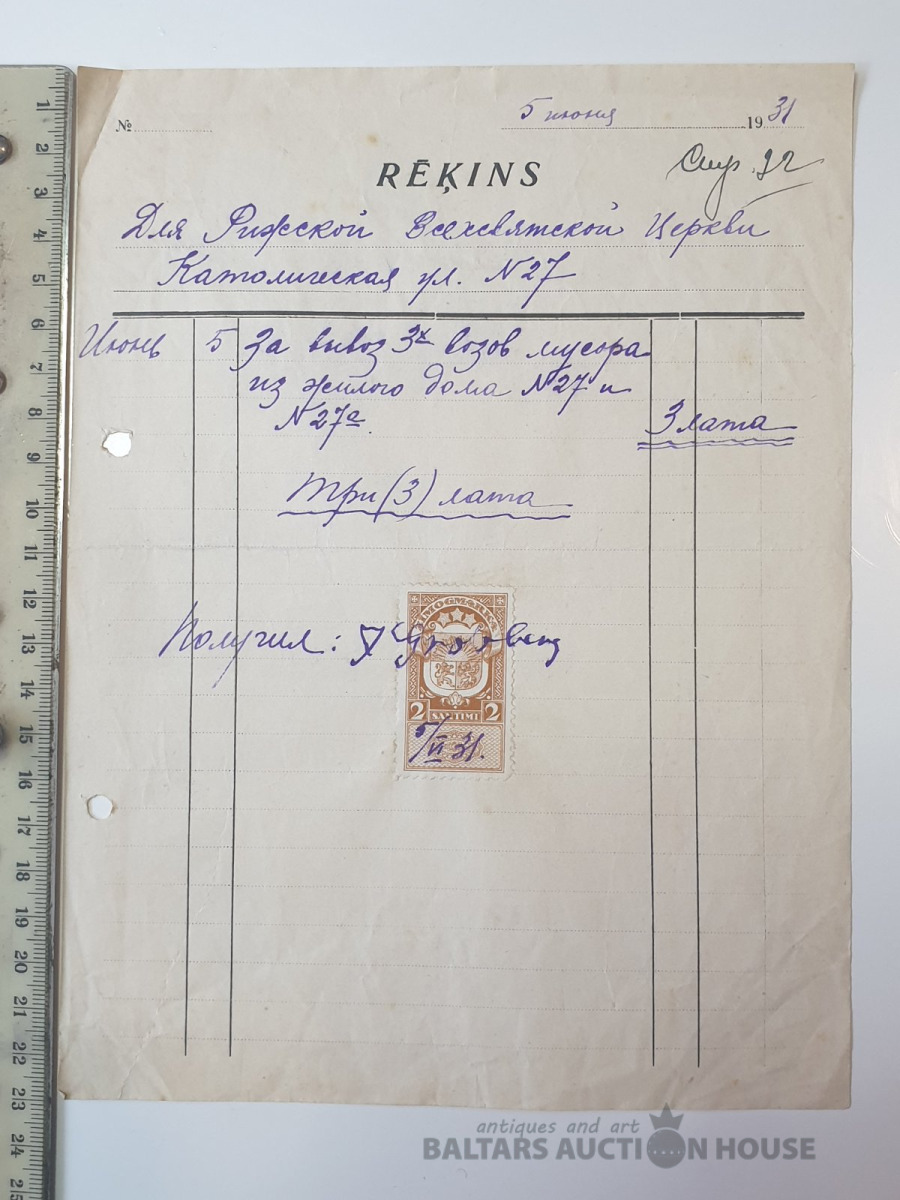 5 июня 1931
№
Стр. 92
RĒĶINS
Для Рижской Всехсвятской Церкви
Католическая ул. N27
Июнь 5 За вывоз 3х возов мусора
из жилого дома N27 и
N27а. 3 лата
Три (3) лата
ZĪMOGMARKA
Получил:
2 SANTIMI 2
5/VI 31.
antiques and art
BALTARS AUCTION HOUSE
1
2
3
4
5
6
7
8
9
10
11
12
13
14
15
16
17
18
19
20
21
22
23
24